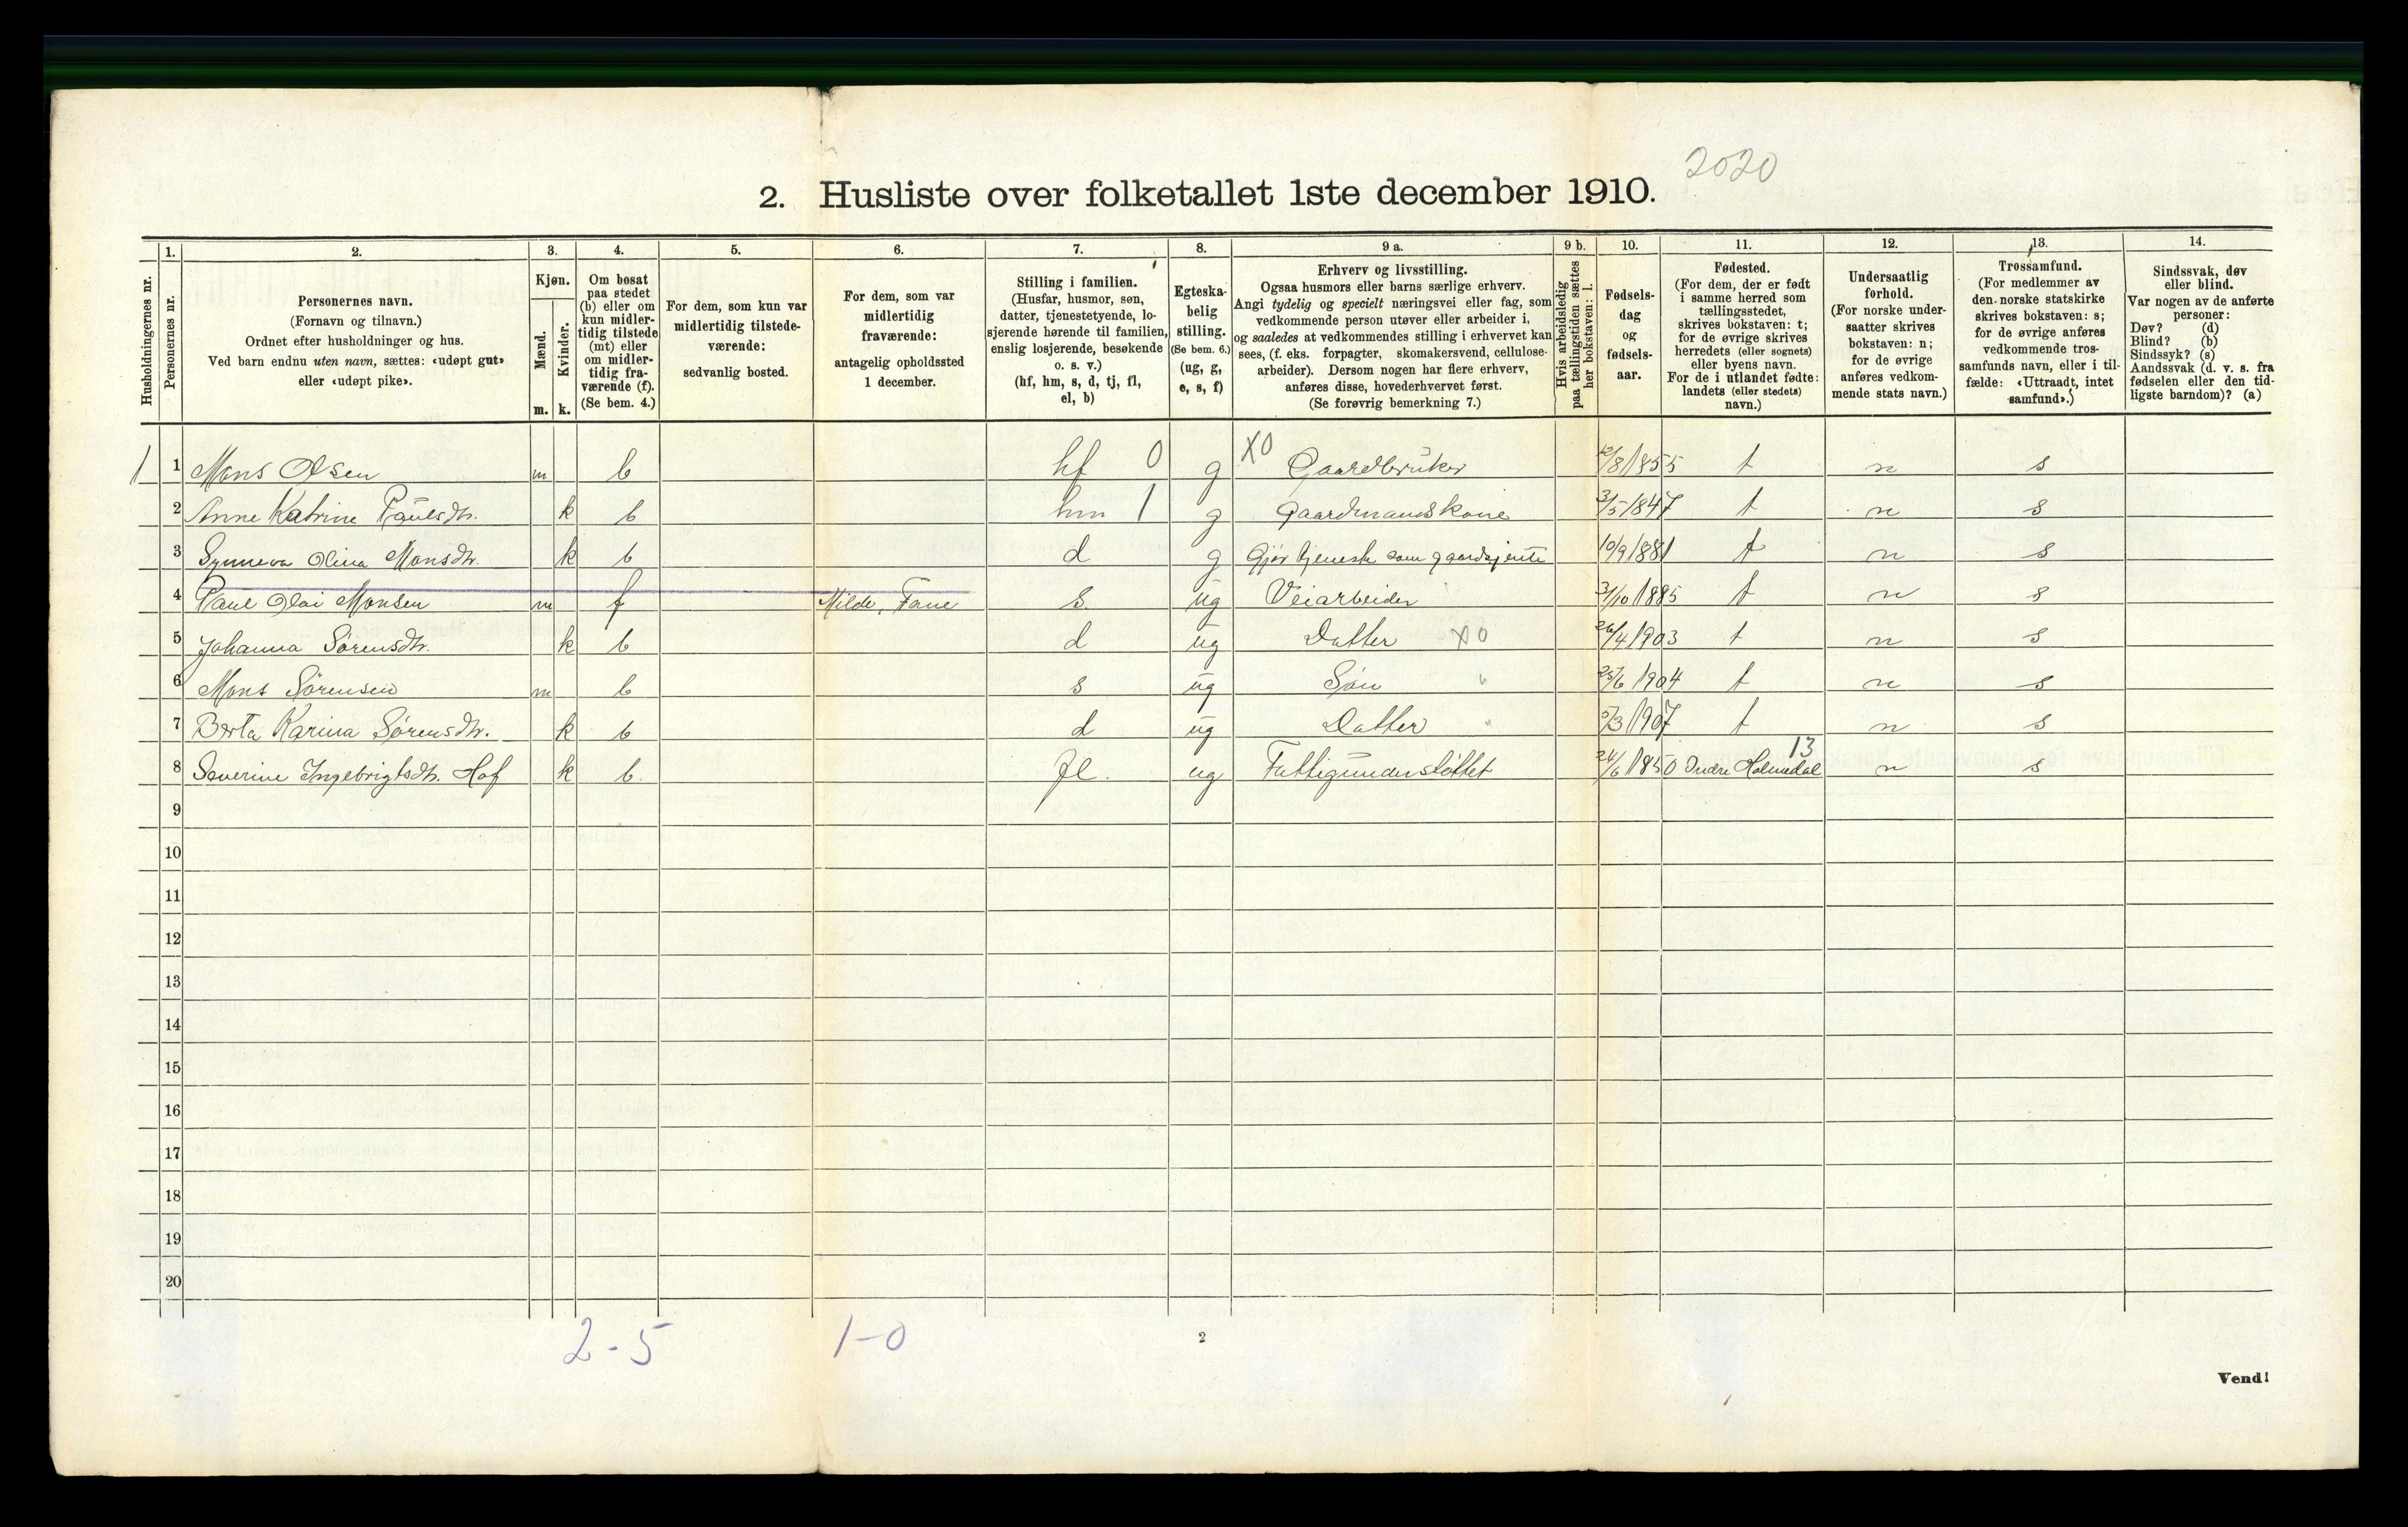 2020
2. Husliste over folketallet 1ste december 1910.
Husholdningernes nr.
1.
Personernes nr.
2.
Personernes navn.
(Fornavn og tilnavn.)
Ordnet efter husholdninger og hus.
Ved barn endnu uten navn, sættes: «udøpt gut»
eller «udøpt pike».
3.
Kjøn.
Mænd.
Kvinder.
m. k.
4.
Om bosat
paa stedet
(b) eller om
kun midler-
tidig tilstede
(mt) eller
om midler-
tidig fra-
værende (f).
(Se bem. 4.)
5.
For dem, som kun var
midlertidig tilstede-
værende:
sedvanlig bosted.
6.
For dem, som var
midlertidig
fraværende:
antagelig opholdssted
1 december.
7.
Stilling i familien.
(Husfar, husmor, søn,
datter, tjenestetyende, lo-
sjerende hørende til familien,
enslig losjerende, besøkende
o. s. v.)
(hf, hm, s, d, tj, fl,
el, b)
8.
Egteska-
belig
stilling.
(Se bem. 6.)
(ug, g,
e, s, f)
9 a.
Erhverv og livsstilling.
Ogsaa husmors eller barns særlige erhverv.
Angi tydelig og specielt næringsvei eller fag, som
vedkommende person utøver eller arbeider i,
og saaledes at vedkommendes stilling i erhvervet kan
sees, (f. eks. forpagter, skomakersvend, cellulose-
arbeider). Dersom nogen har flere erhverv,
anføres disse, hovederhvervet først.
(Se forøvrig bemerkning 7.)
9 b.
Hvis arbeidsledig
paa tællingstiden sættes
her bokstaven: l.
10.
Fødsels-
dag
og
fødsels-
aar.
11.
Fødested.
(For dem, der er født
i samme herred som
tællingsstedet,
skrives bokstaven: t;
for de øvrige skrives
herredets (eller sognets)
eller byens navn.
For de i utlandet fødte:
landets (eller stedets)
navn.)
12.
Undersaatlig
forhold.
(For norske under-
saatter skrives
bokstaven: n;
for de øvrige
anføres vedkom-
mende stats navn.)
13.
Trossamfund.
(For medlemmer av
den norske statskirke
skrives bokstaven: s;
for de øvrige anføres
vedkommende tros-
samfunds navn, eller i til-
fælde: «Uttraadt, intet
samfund».)
14.
Sindssvak, døv
eller blind.
Var nogen av de anførte
personer:
Døv? (d)
Blind? (b)
Sindssyk? (s)
Aandssvak (d. v. s. fra
fødselen eller den tid-
ligste barndom)? (a)
1 1 Mons Olsen m b hf 0 g X0 Gaardbruker 12/8 1855 t n s
2 Anne Katrine Paulsdtr. k b hm 1 g Gaardmandskone 31/5 1847 t n s
3 Synneva Olina Monsdtr. k b d g Gjør tjeneste som gaardsjente 10/9 1881 t n s
4 Paul Olai Monsen m f Milde, Fane s. ug Veiarbeider 31/10 1885 t n s
5 Johanna Sørensdtr. k b d ug Datter X0 26/4 1903 t n s
6 Mons Sørensen m b s ug Søn " 25/6 1904 t n s
7 Berta Karina Sørensdtr. k b d ug Datter " /3 1907 t n s
8 Severine Ingebrigtsdtr. Hof k b. fl. ug Fattigunderstøttet 24/6 1850 Indre Holmedal 13 n s
9
10
11
12
13
14
15
16
17
18
19
20
2-5 1-0
2
Vend!